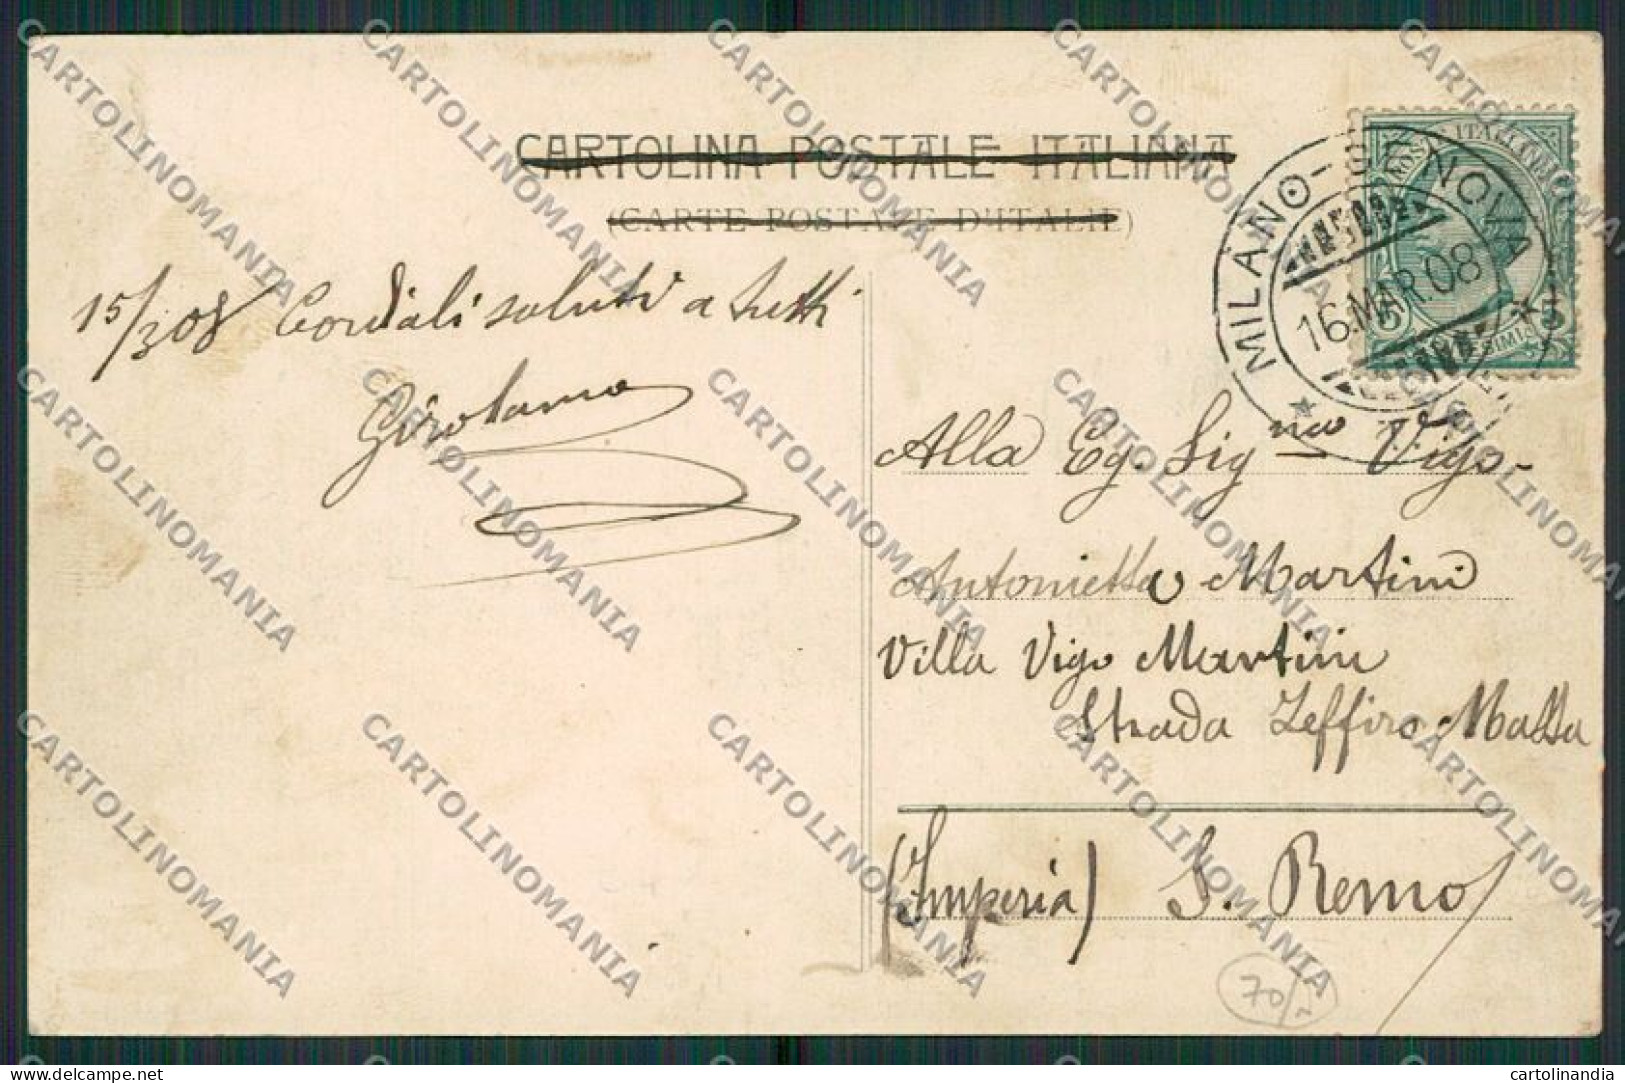 CARTOLINA POSTALE ITALIANA
(CARTE POSTALE D'ITALIE)
MILANO-GENOVA
16.MAR.08
15/3 08 Cordiali saluti a tutti
Girolamo
Alla Eg. Signa Vigo-
Antonietta Martini
Villa Vigo Martini
Strada Zeffiro Massa
(Imperia) S. Remo
70/
CARTOLINOMANIA
delcampe.net
cartolinandia